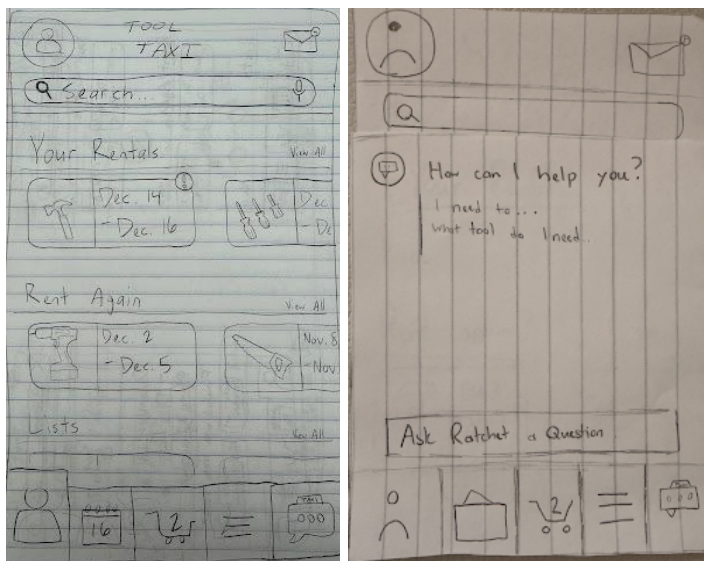 TOOL
TAXI
Search...
Your Rentals
View All
Dec. 14
- Dec. 16
Dec
- De
Rent Again
View All
Dec. 2
- Dec. 5
Nov. 8
- Nov
Lists
View All
16
2
TAXI
How can I help you?
I need to...
what tool do I need..
Ask Ratchet a Question
2